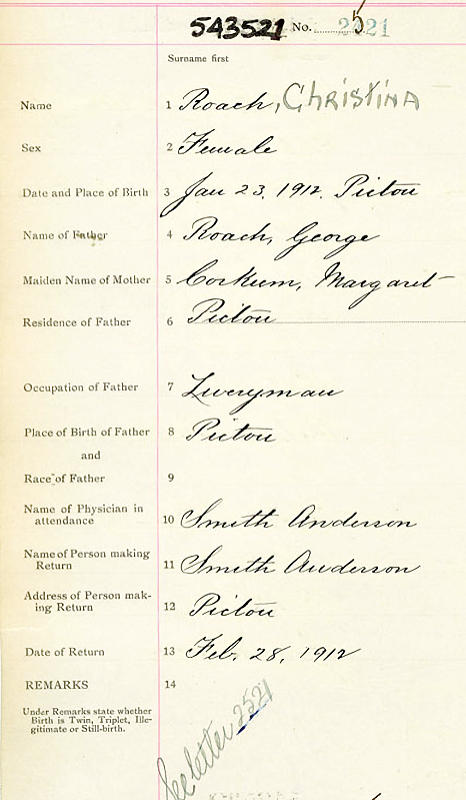 543521 No. 2521
Surname first
Name 1 Roach, Christina
Sex 2 Female
Date and Place of Birth 3 Jan 23, 1912. Pictou
Name of Father 4 Roach, George
Maiden Name of Mother 5 Corkum, Margaret
Residence of Father 6 Pictou
Occupation of Father 7 Liveryman
Place of Birth of Father 8 Pictou
and
Race of Father 9
Name of Physician in
attendance 10 Smith Anderson
Name of Person making
Return 11 Smith Anderson
Address of Person mak-
ing Return 12 Pictou
Date of Return 13 Feb. 28, 1912
REMARKS 14
Under Remarks state whether
Birth is Twin, Triplet, Ille-
gitimate or Still-birth.
See letter 2521